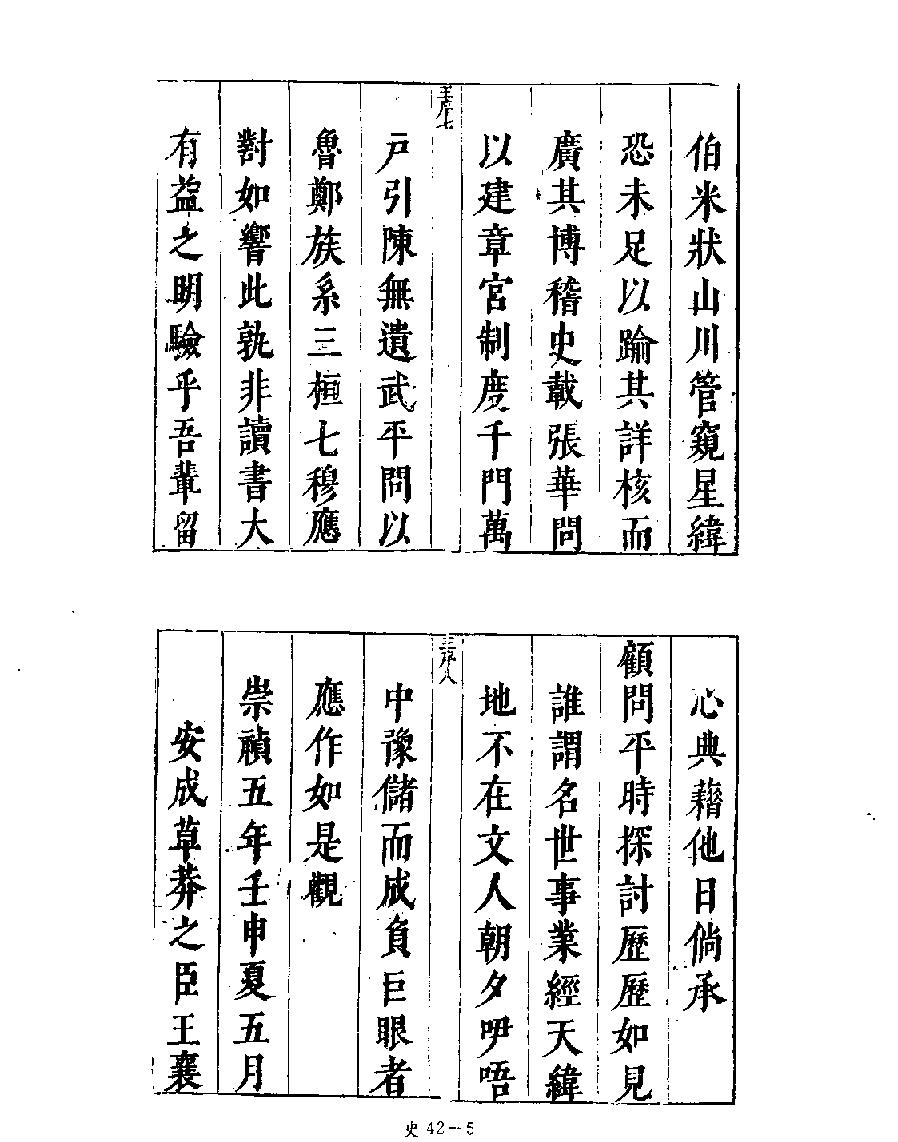 伯米狀山川管窺星緯
恐未足以踰其詳核而
廣其博稽史載張華問
以建章宮制度千門萬
王序七
戶引陳無遺武平問以
魯鄭族系三桓七穆應
對如響此孰非讀書大
有益之明驗乎吾輩留
心典藉他日倘承
顧問平時探討歷歷如見
誰謂名世事業經天緯
地不在文人朝夕吚唔
王序八
中豫儲而成負巨眼者
應作如是觀
崇禎五年壬申夏五月
安成草莽之臣王襄
史 42－5